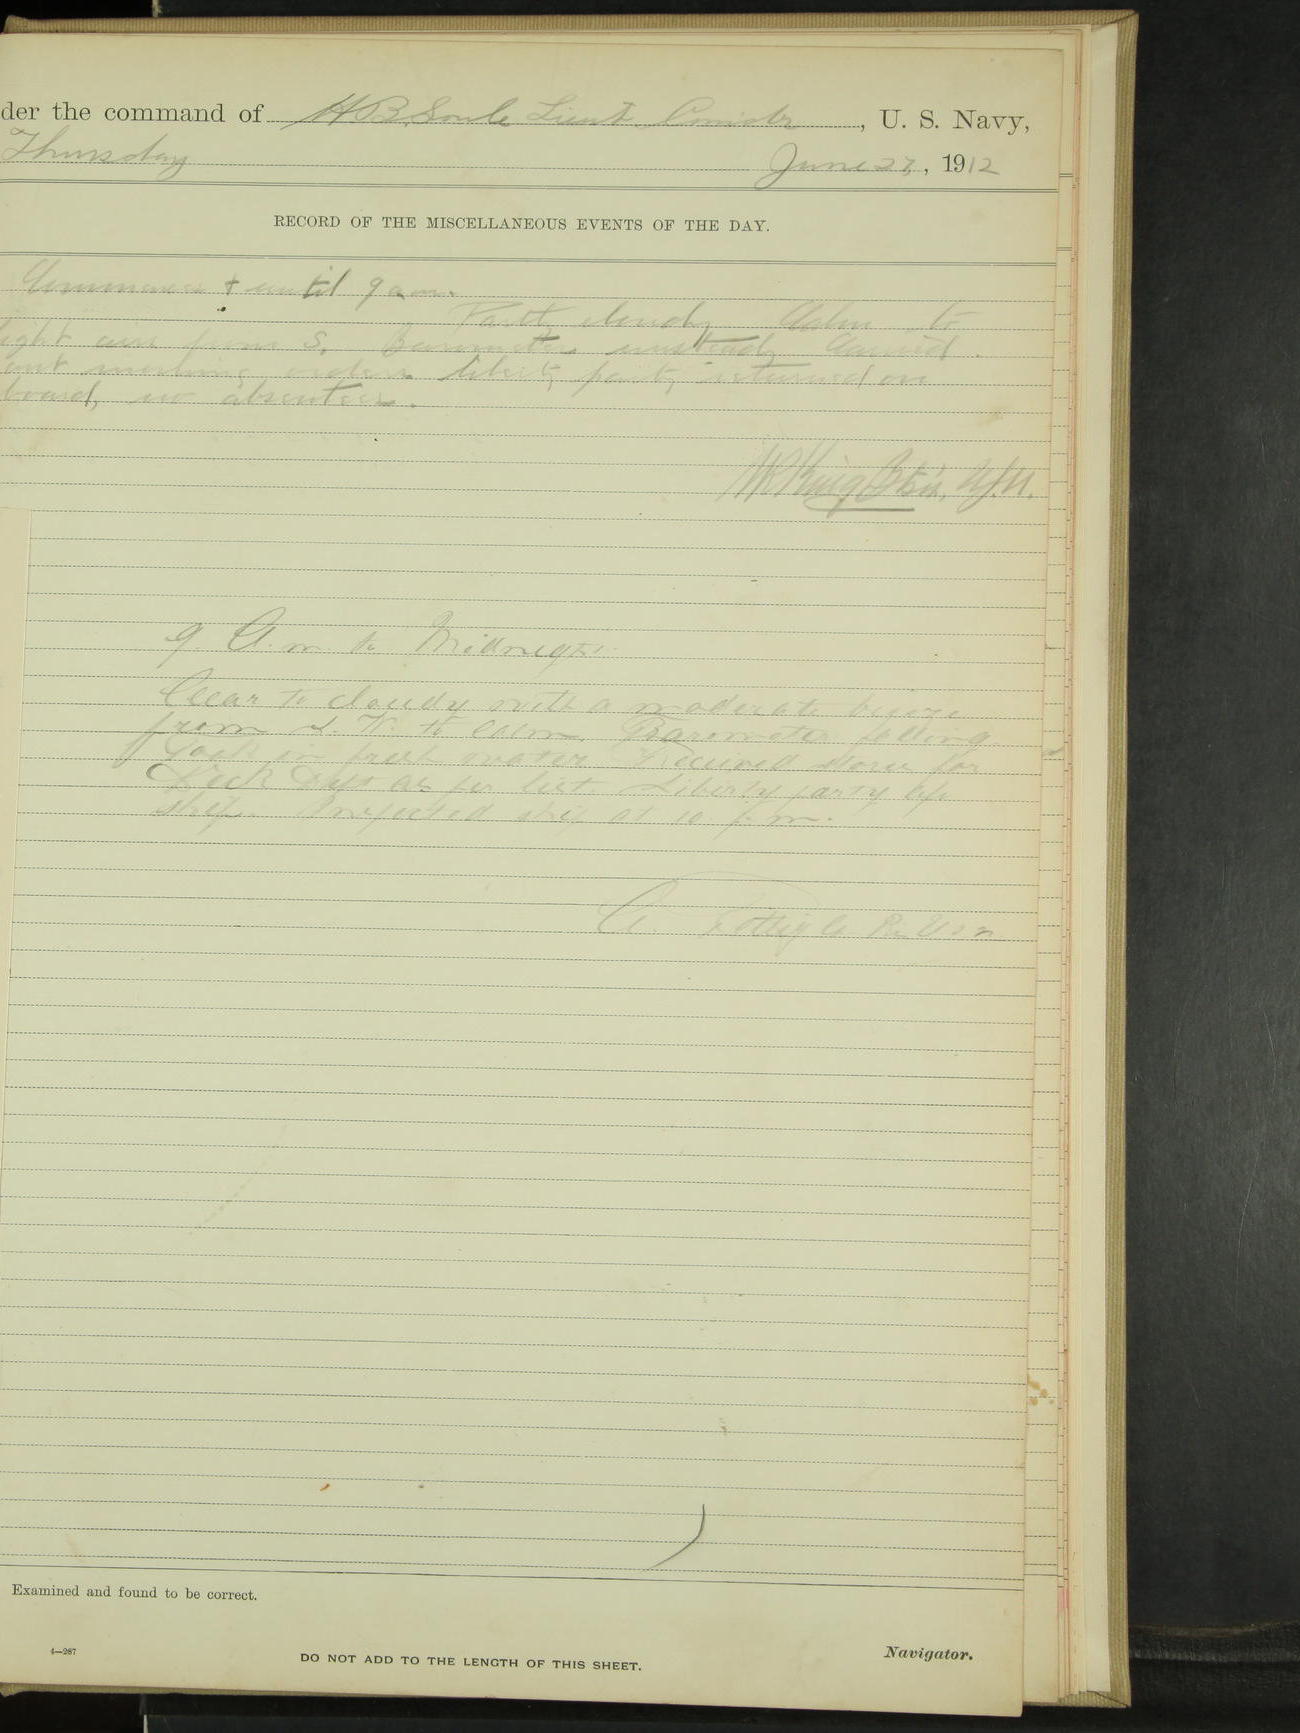 der the command of H B Soule Lieut Comdr, U. S. Navy,
Thursday June 27, 1912
RECORD OF THE MISCELLANEOUS EVENTS OF THE DAY.
Commences & until 9 am.
Partly cloudy Calm to
light airs from S. Barometer unsteady Carried
out morning orders liberty party returned on
board, no absentees.
King
9 A.m. to Midnight
Clear to cloudy with a moderate breeze
from S. W. to calm. Barometer falling
Took in fresh water. Received stores for
Deck Dept as per list. Liberty party left
ship. Inspected ship at 10 p. m.
Examined and found to be correct.
4—287
DO NOT ADD TO THE LENGTH OF THIS SHEET.
Navigator.